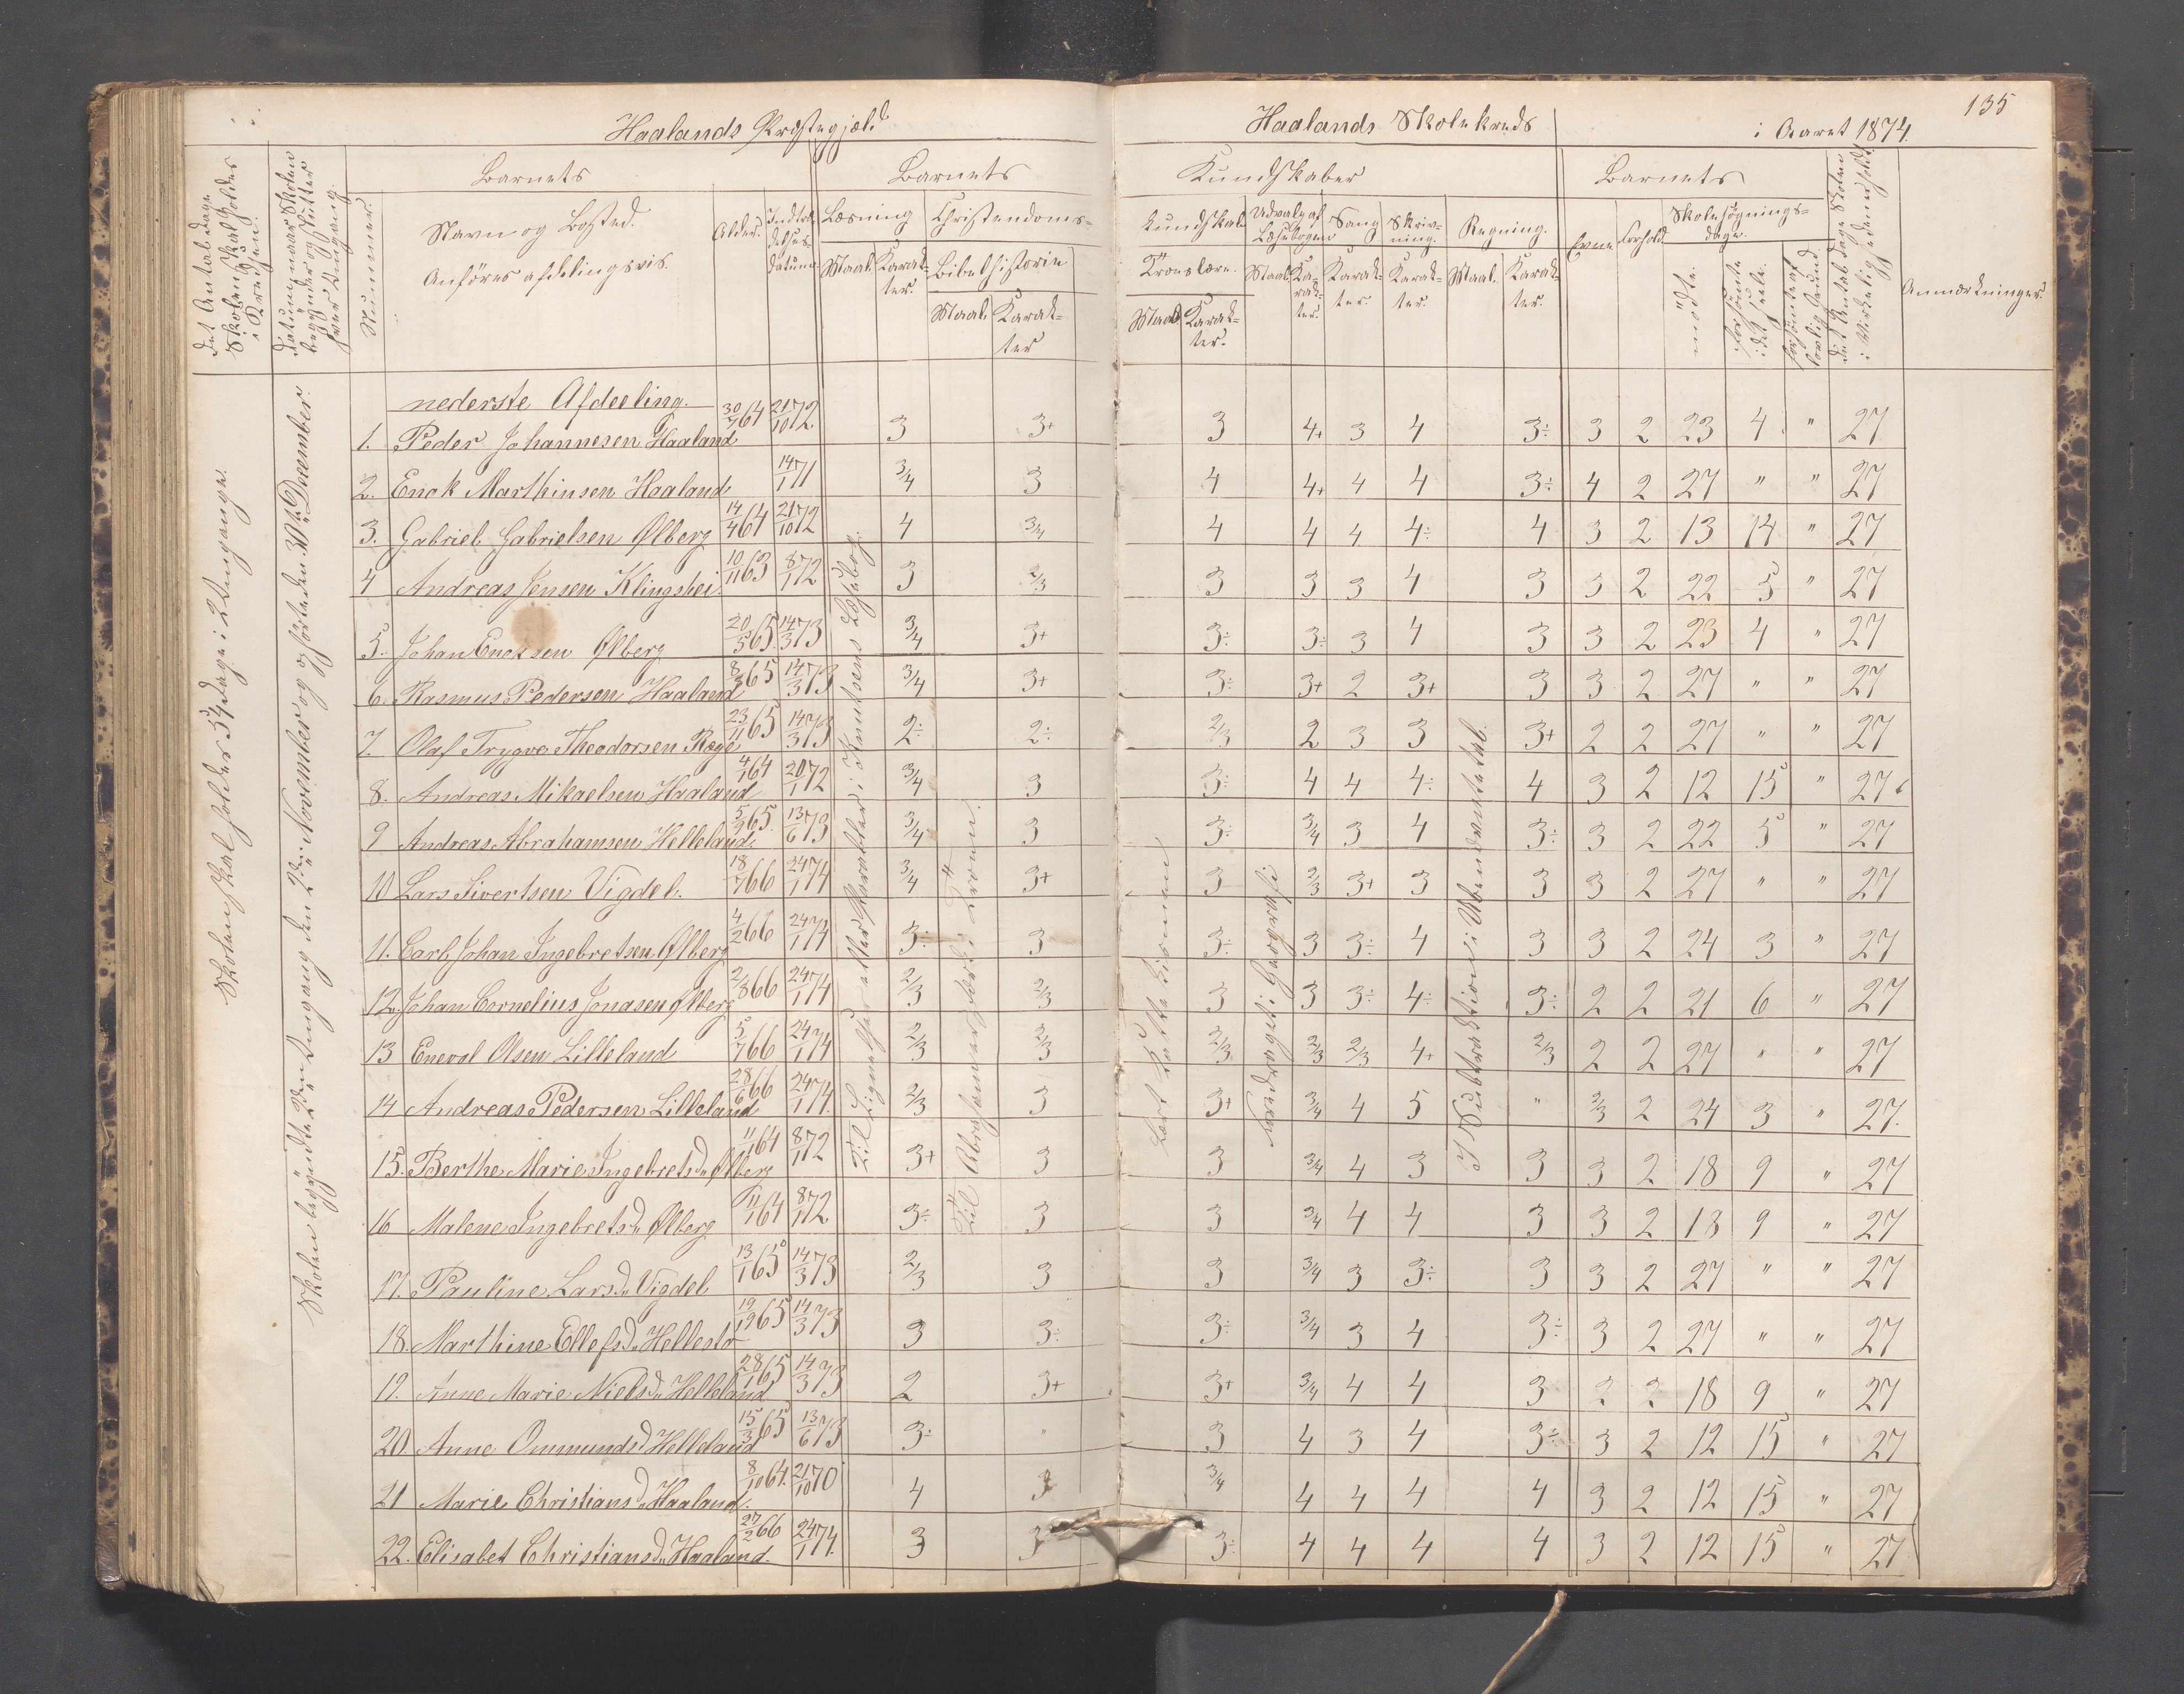 135
Haalands Præstegjæld Haalands Skolekreds i Aaret 1874.
Det Antal Dage Skolen skal holdes i Kredsen.
Datum naar Skolen begynder og slutter hver Omgang.
Nummer.
Barnets Barnets Kundskaber Barnets
Navn og Bosted.
Anføres afdelingsvis.
Alder. Indtrædelses-datum
Læsning Christendoms- kundskab Udvalg af Læsebogen Sang Skrivning. Regning. Evne Forhold Skolesøgnings-dage.
Maal. Karakter. Bibelhistorie Troeslære. Maal. Karakter. Karakter. Karakter. Maal. Karakter. mødte forsømte i det hele. forsømte af lovlig Grund.
Maal. Karakter Maal. Karakter.
Det Antal Dage Skolen i Virkeligheden er holdt.
Anmærkninger.
Skolen skal holdes 54 Dage i 2 Omgange.
Skolen begyndte 2den Omgang den 2den November og opførte den 30te December.
Til Lignelser eller Parabler i Knutsens Læsebog.
Til Abraham
Lært
Foredraget i Geografi
I Subtraktion i Ubenævntetal.
nederste Afdeeling.
1. Peder Johannesen Haaland 30/7 64 21/10 72 3 3+ 3 4+ 3 4 3÷ 3 2 23 4 " 27
2. Enok Marthinsen Haaland 14/1 71 3/4 3 4 4+ 4 4 3÷ 4 2 27 " " 27
3. Gabriel Gabrielsen Ølberg 14/4 64 21/10 72 4 3/4 4 4 4 4÷ 4 3 2 13 14 " 27
4 Andreas Jensen Klingshei 10/11 63 8/1 72 3 2/3 3 3 3 4 3 3 2 22 5 " 27
5. Johan Enoksen Ølberg 20/5 65. 14/3 73 3/4 3+ 3÷ 3÷ 3 4 3 3 2 23 4 " 27
6. Rasmus Pedersen Haaland 8/3 65 14/3 73 3/4 3+ 3÷ 3+ 2 3+ 3 3 2 27 " " 27
7. Olaf Trygve Theodorsen Rege 23/11 65 14/3 73 2÷ 2÷ 2/3 2 3 3 3+ 2 2 27 " " 27
8. Andreas Mikaelsen Haaland 4/1 64 20/1 72 3/4 3 3÷ 4 4 4÷ 4 3 2 12 15 " 27
9 Andreas Abrahamsen Helleland. 5/9 65. 13/6 73 3/4 3 3÷ 3/4 3 4 3÷ 3 2 22 5 " 27
10 Lars Sivertsen Vigdel. 18/7 66 24/1 74 3/4 3+ 3 2/3 3+ 3 3 3 2 27 " " 27
11. Carl Johan Ingebretsen Ølberg 4/2 66 24/1 74 3÷ 3 3÷ 3 3÷ 4 3 3 2 24 3 " 27
12. Johan Cornelius Jonasen Ølberg 2/8 66 24/1 74 2/3 2/3 3 3 3÷ 4÷ 3÷ 2 2 21 6 " 27
13 Enevol Olsen Lilleland 5/7 66 24/1 74 2/3 2/3 2/3 2/3 2/3 4+ 2/3 2 2 27 " " 27
14 Andreas Pedersen Lilleland 28/6 66 24/1 74. 2/3 3 3+ 3/4 4 5 " 2/3 2 24 3 " 27.
15. Berthe Marie Ingebretsd. Ølberg 11/1 64 8/1 72 3+ 3 3 3/4 4 3 3 3 2 18 9 " 27
16 Malene Ingebretsd. Ølberg 11/1 64 8/1 72 3÷ 3 3 3/4 4 4 3 3 2 18 9 " 27
17. Pauline Larsd. Vigdel 13/1 65 14/3 73 2/3 3 3 3/4 3 3÷ 3 3 2 27 " " 27
18. Marthine Ellefsd. Hellestø 19/9 65 14/3 73 3 3÷ 3÷ 3/4 3 4 3÷ 3 2 27 " " 27
19. Anne Marie Nielsd. Helleland 28/1 65 14/3 73 2 3+ 3+ 3/4 4 4 3 2 2 18 9 " 27
20 Anne Ommundsd. Helleland 15/3 65 13/6 73 3÷ " 3 4 3 4 3÷ 3 2 12 15 " 27
21 Marie Christiansd. Haaland. 8/10 64. 21/10 70 4 3 3/4 4 4 4 4 3 2 12 15 " 27
22. Elisabet Christiansd. Haaland. 27/2 66 24/1 74. 3 3 3÷ 4 4 4 4 3 2 12 15 " 27